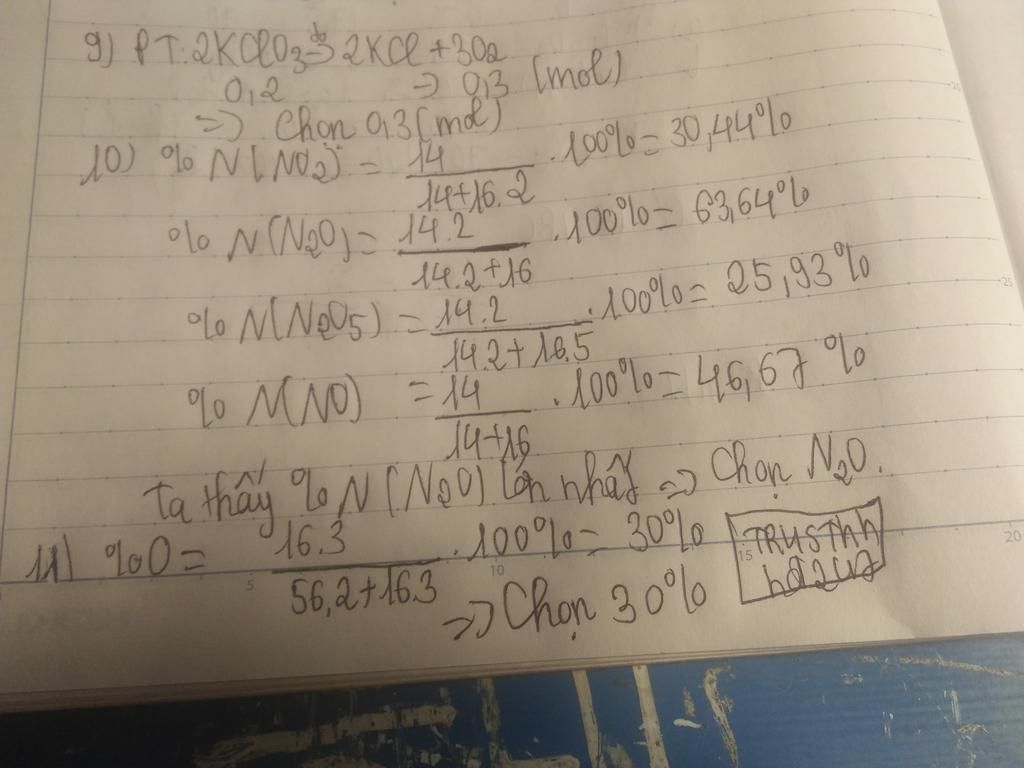 9) PT: 2KClO3 t° → 2KCl + 3O2
0,2 → 0,3 (mol)
=> Chọn 0,3 (mol)
10) % N(NO2) = 14 / 14+16.2 . 100% = 30,44%
% N(N2O) = 14.2 / 14.2+16 . 100% = 63,64%
% N(N2O5) = 14.2 / 14.2+16.5 . 100% = 25,93%
% N(NO) = 14 / 14+16 . 100% = 46,67 %
Ta thấy % N(N2O) lớn nhất => Chọn N2O.
11) %O = 16.3 / 56,2+16.3 . 100% = 30%
=> Chọn 30%
5 10 15 20
25